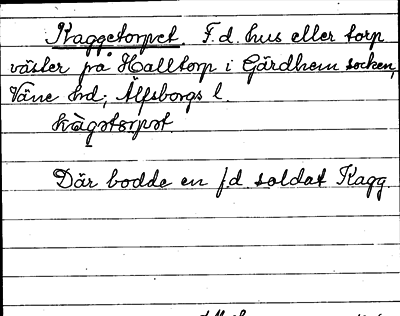 Kaggetorpet. F.d. hus eller torp
väster på Halltorp i Gärdhem socken,
Väne hd; Älfsborgs l.
kàgətorpət
Där bodde en f.d. soldat Kagg.